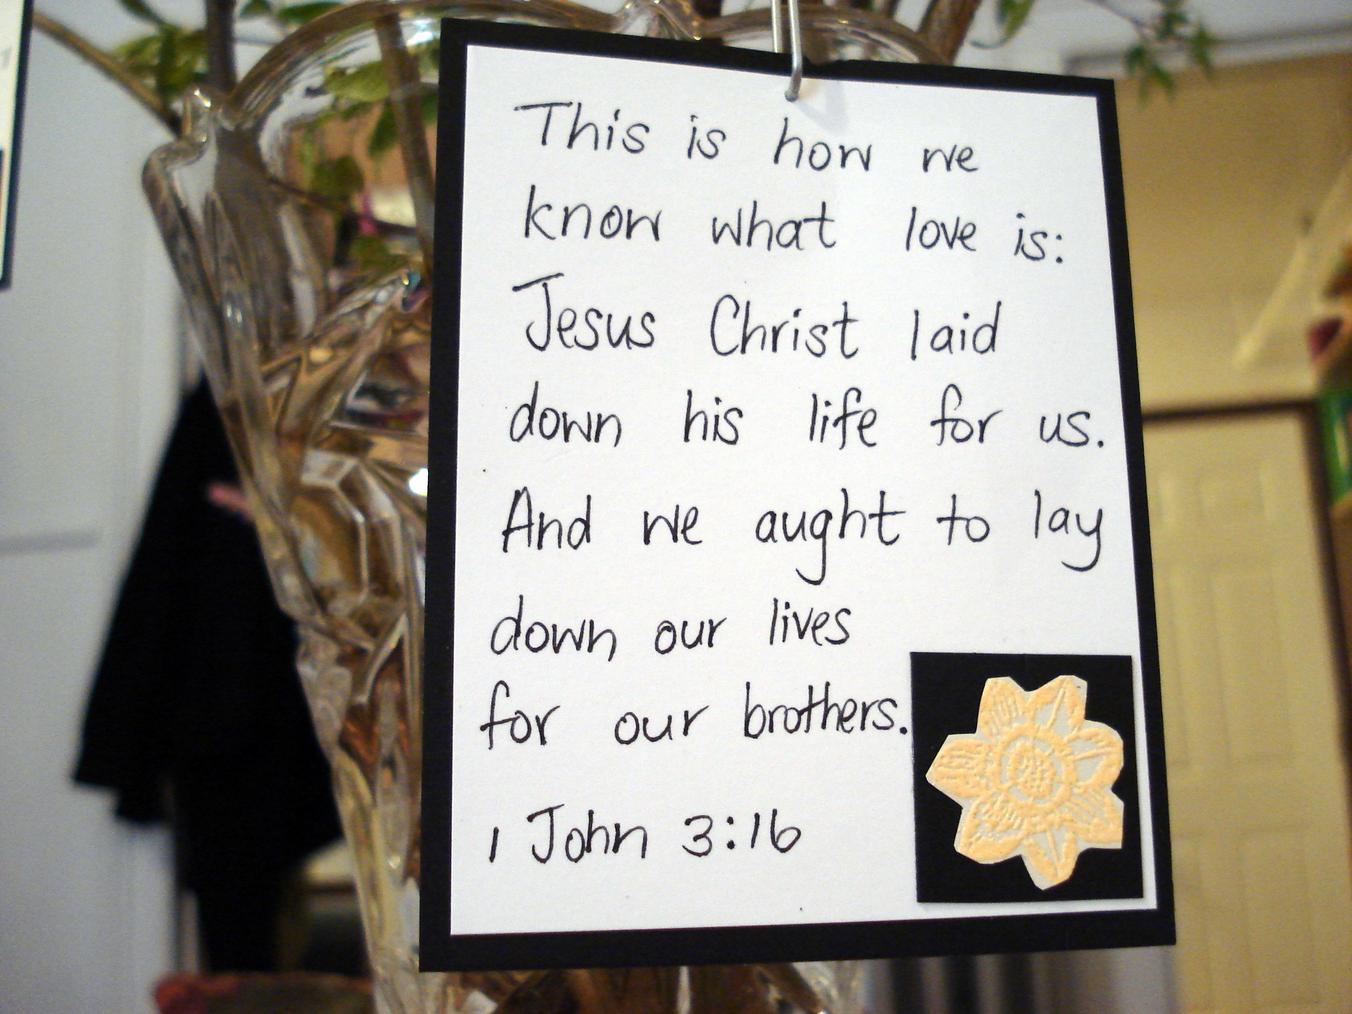 This is how we
know what love is:
Jesus Christ laid
down his life for us.
And we aught to lay
down our lives
for our brothers.
1 John 3:16